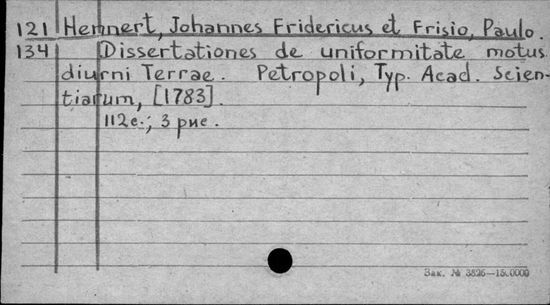 121 Hennert, Johannes Fridericus et Frisio, Paulo.
134 Dissertationes de uniformitate motus
diurni Terrae. Petropoli, Typ. Acad. Scien-
tiarum, [1783].
112 с.; 3 рис.
Зак. № 3826—15.0000